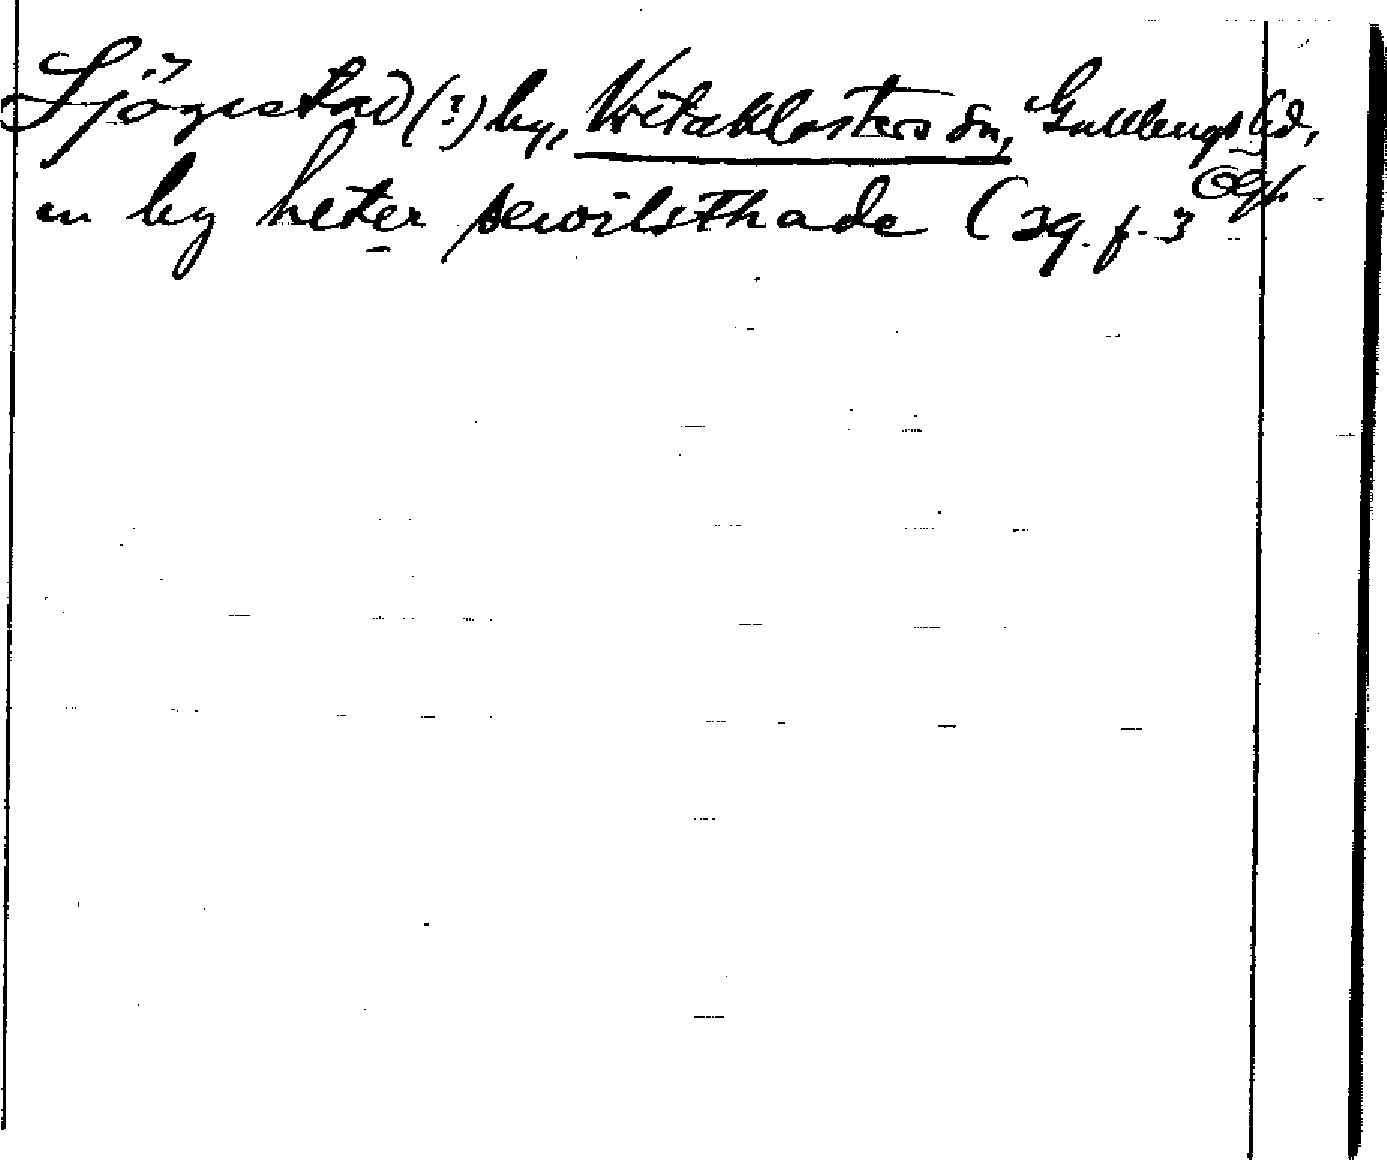 Sjögestad (?) by, Vretaklosters sn, Gullbergs hd,
Ögl.
en by heter sewilsthade (29. f. 3